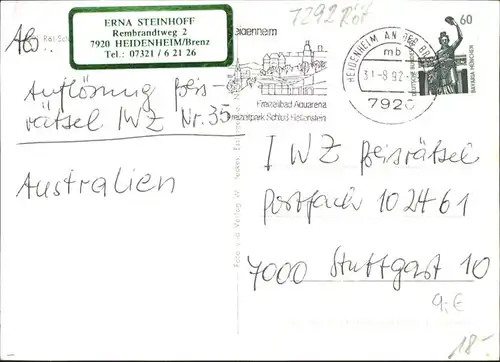 7292 Röt
Abs.
ERNA STEINHOFF
Rembrandtweg 2
7920 HEIDENHEIM/Brenz
Tel.: 07321 / 6 21 26
Auflösung Preis-
rätsel IWZ Nr. 35
Australien
Heidenheim
Freizeitbad Aquarena
Freizeitpark Schloß Hellenstein
HEIDENHEIM AN DER BR
mb
31.-8.92.
7920
60
DEUTSCHE BUNDESPOST
BAVARIA MÜNCHEN
IWZ Preisrätsel
Postfach 102461
7000 Stuttgart 10
9,-€
18.-